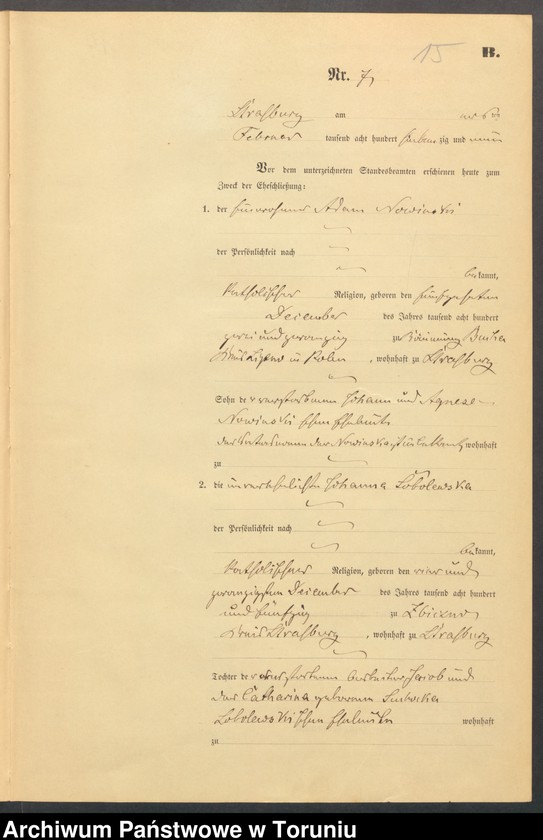 15
B.
Nr. 7
Strasburg am
Februar tausend acht hundert siebenzig und neun
Vor dem unterzeichneten Standesbeamten erschienen heute zum
Zweck der Eheschließung:
1. der Einwohner Adam Nowinski
der Persönlichkeit nach
bekannt,
katholischer Religion, geboren den fünfzehnten
Dezember des Jahres tausend acht hundert
zwei und zwanzig zu
Kreis Lipno in Polen, wohnhaft zu Strasburg
Sohn der verstorbenen Johann und Agnese
Nowinskischen Eheleute
wohnhaft
zu
2. die unverehelichte Johanna Sobolewska
der Persönlichkeit nach
bekannt,
katholischer Religion, geboren den vier und
zwanzigsten Dezember des Jahres tausend acht hundert
und fünfzig zu Zbiczno
Kreis Strasburg, wohnhaft zu Strasburg
Tochter der verstorbenen Jacob und
der Catharina geborenen
Sobolewskischen Eheleute wohnhaft
zu
Archiwum Państwowe w Toruniu